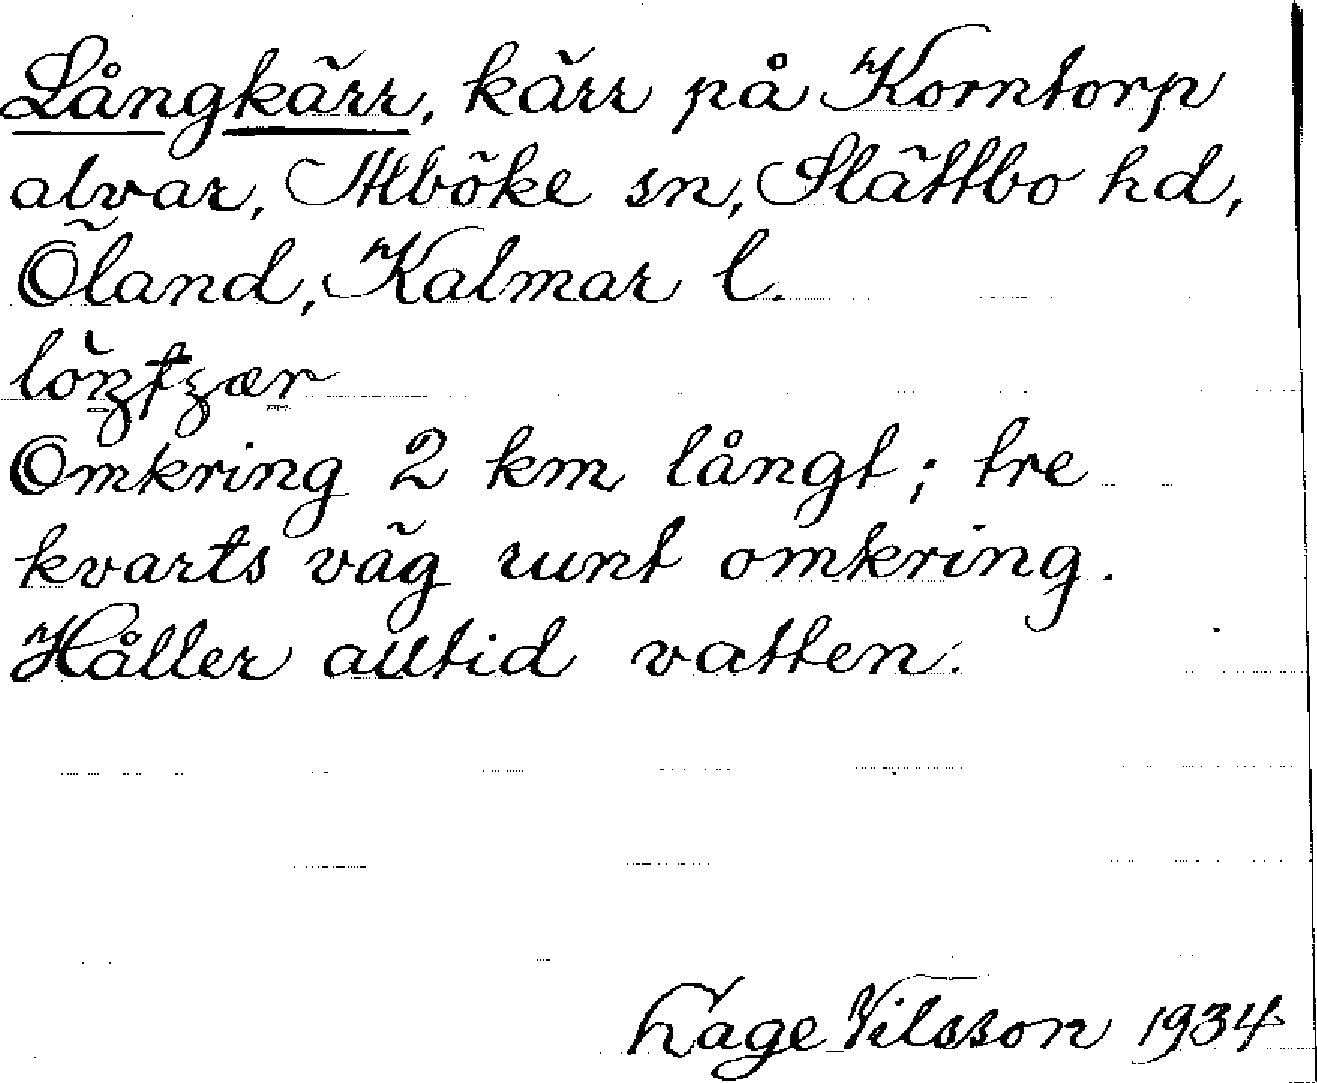 Långkärr, kärr på Korntorp
alvar, Alböke sn, Slättbo hd,
Öland, Kalmar l.
Omkring 2 km långt; tre
kvarts väg runt omkring.
Håller alltid vatten.
Tage Nilsson 1934